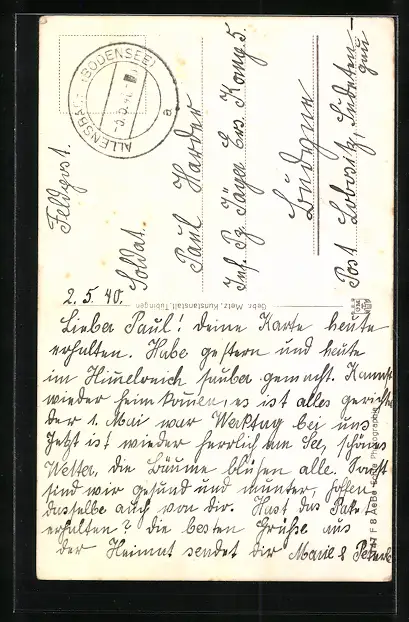 Feldpost.
ALLENSBACH (BODENSEE)
a
Soldat.
Paul Harder
Inf. Pz. Jäger Ers. Komp. 5.
Post Lobositz, Sudeten-
gau
2. 5. 40.
Gebr. Metz, Kunstanstalt, Tübingen
Lieber Paul! deine Karte heute
erhalten. Habe gestern und heute
im Himelreich sauber gemacht. Kannst
wieder heim komen, es ist alles gerichtet
der 1. Mai war Werktag bei uns
Jetzt ist wieder herrlich am See, schönes
Wetter, die Bäume blühen alle. Sonst
sind wir gesund und munter, hoffen
dasselbe auch von dir. Hast das Paket
erhalten? die besten Grüße aus
der Heimat sendet dir